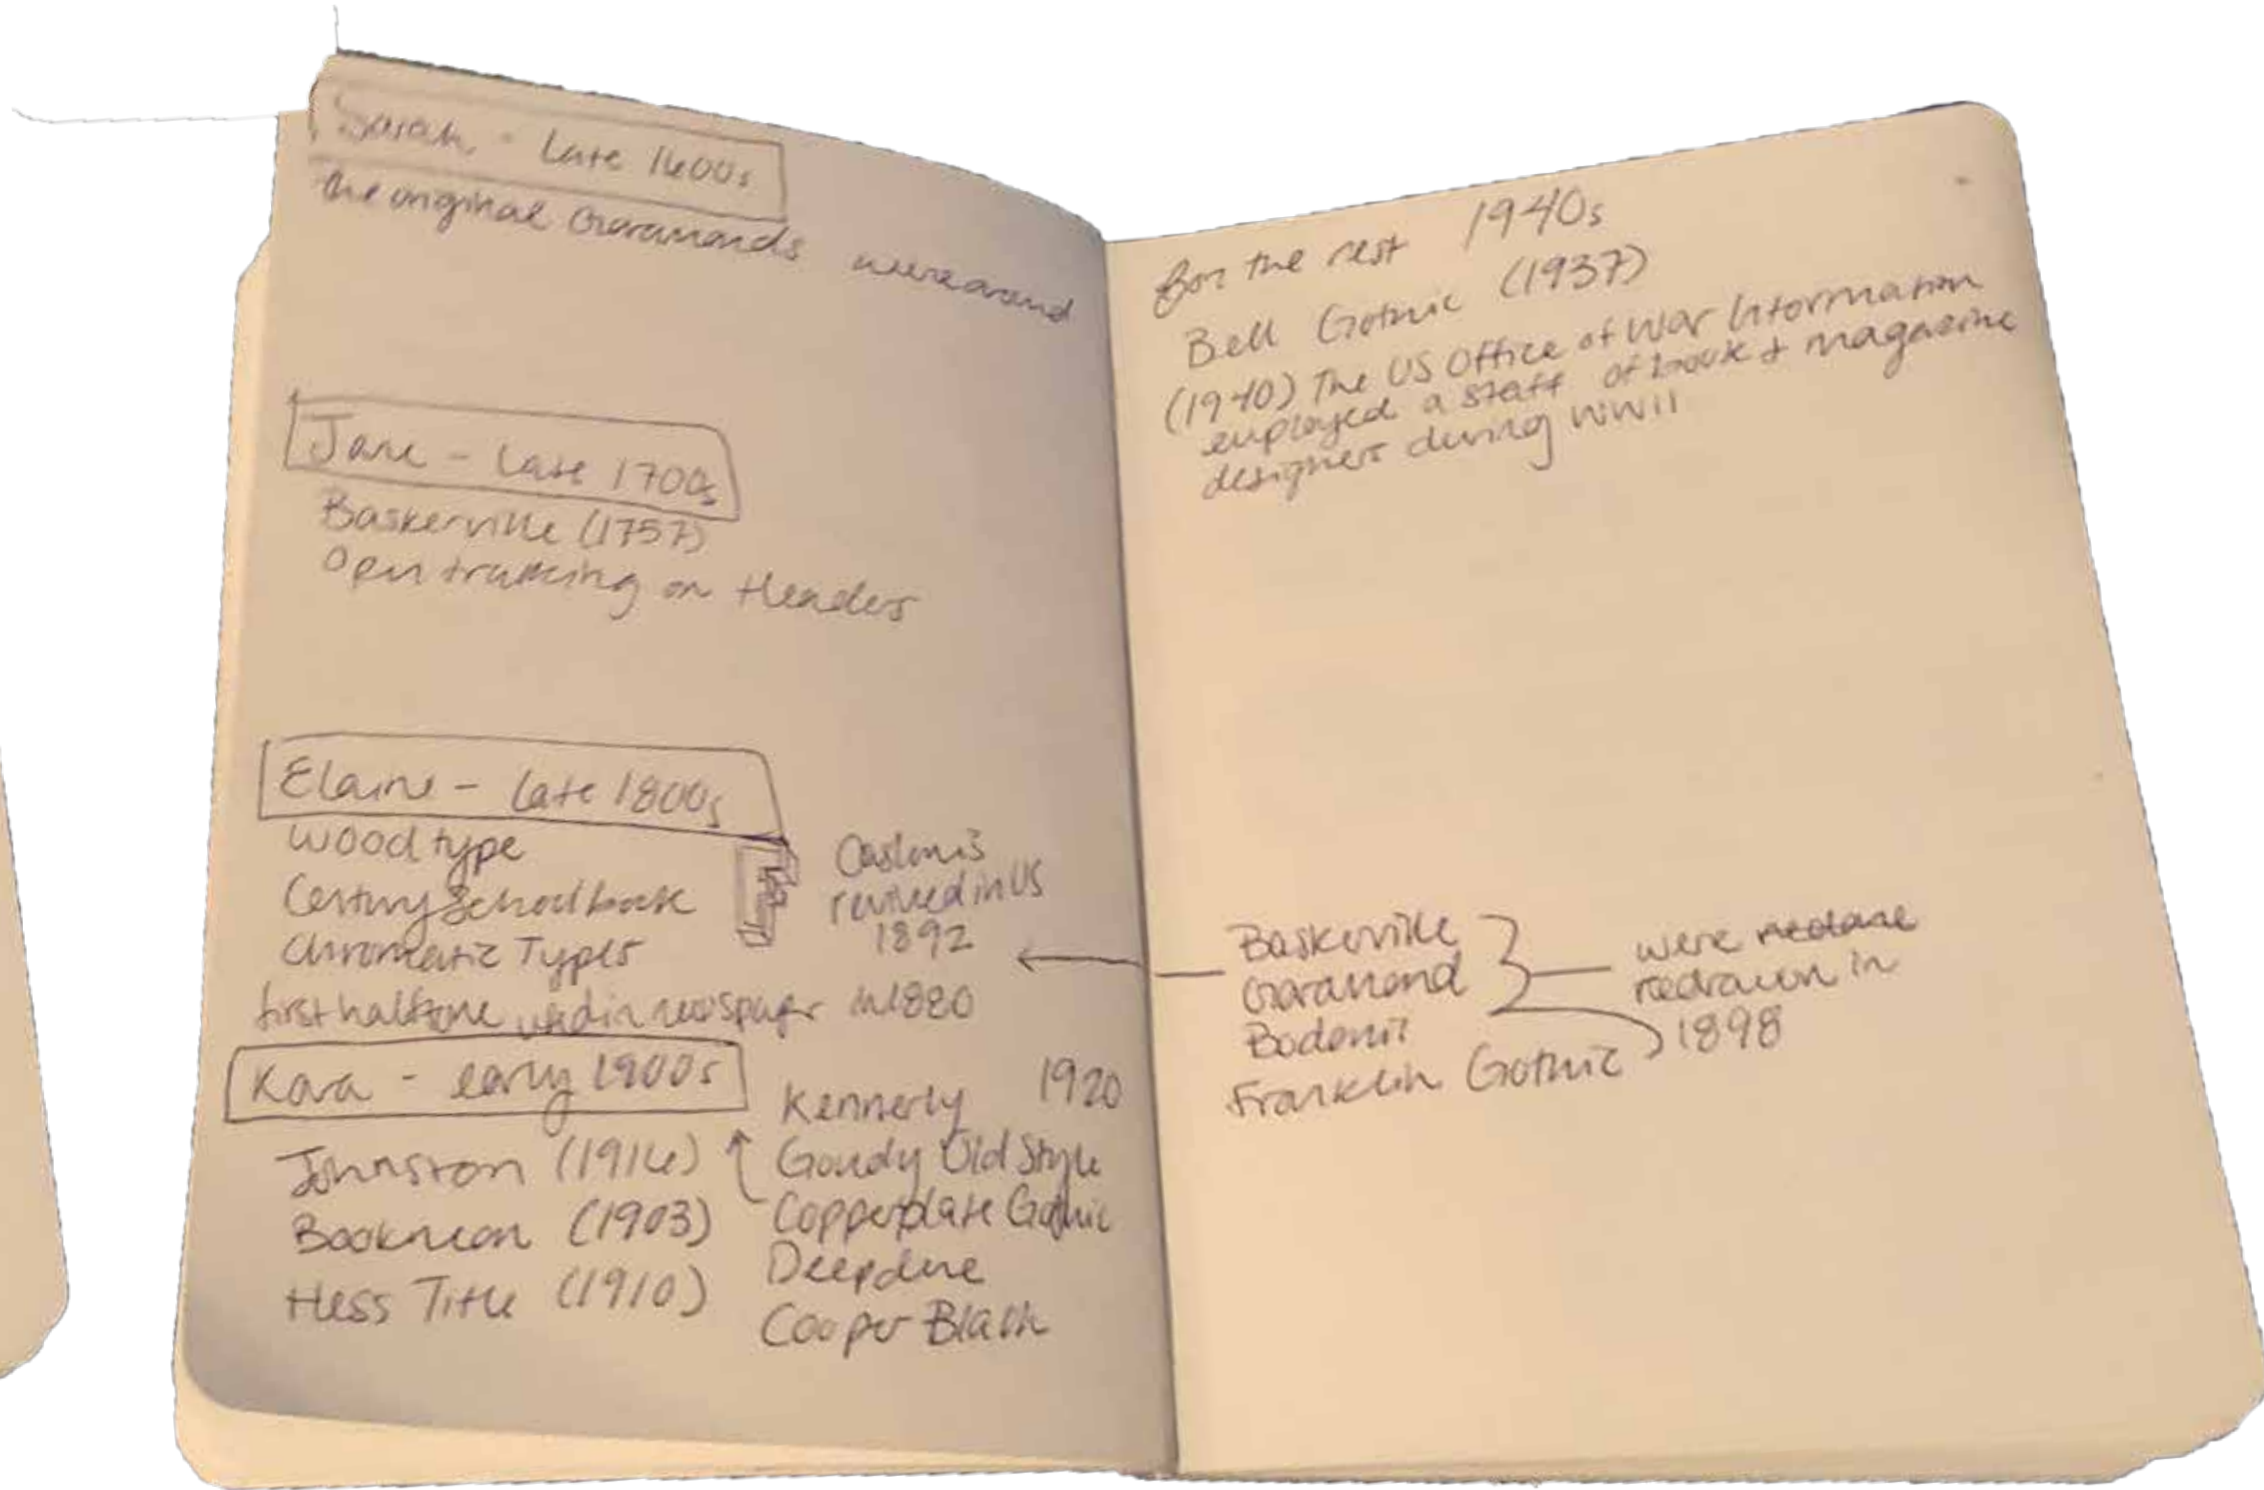 Sarah - Late 1600s
the original Garamonds were around
Jane - Late 1700s
Baskerville (1757)
Open tracking on Headers
Elaine - Late 1800s
Wood type
Century Schoolbook
Chromatic Types
first halftone used in newspaper in 1880
Caslon is
revived in US
1892
Kara - early 1900s
Johnston (1916)
Bookman (1903)
Hess Title (1910)
Kennerly 1920
Goudy Old Style
Copperplate Gothic
Deepdene
Cooper Black
For the rest 1940s
Bell Gothic (1937)
(1940) The US Office of War Information
employed a staff of book & magazine
designers during WWII
Baskerville
Garamond
Bodoni
Franklin Gothic
were
redrawn in
1898